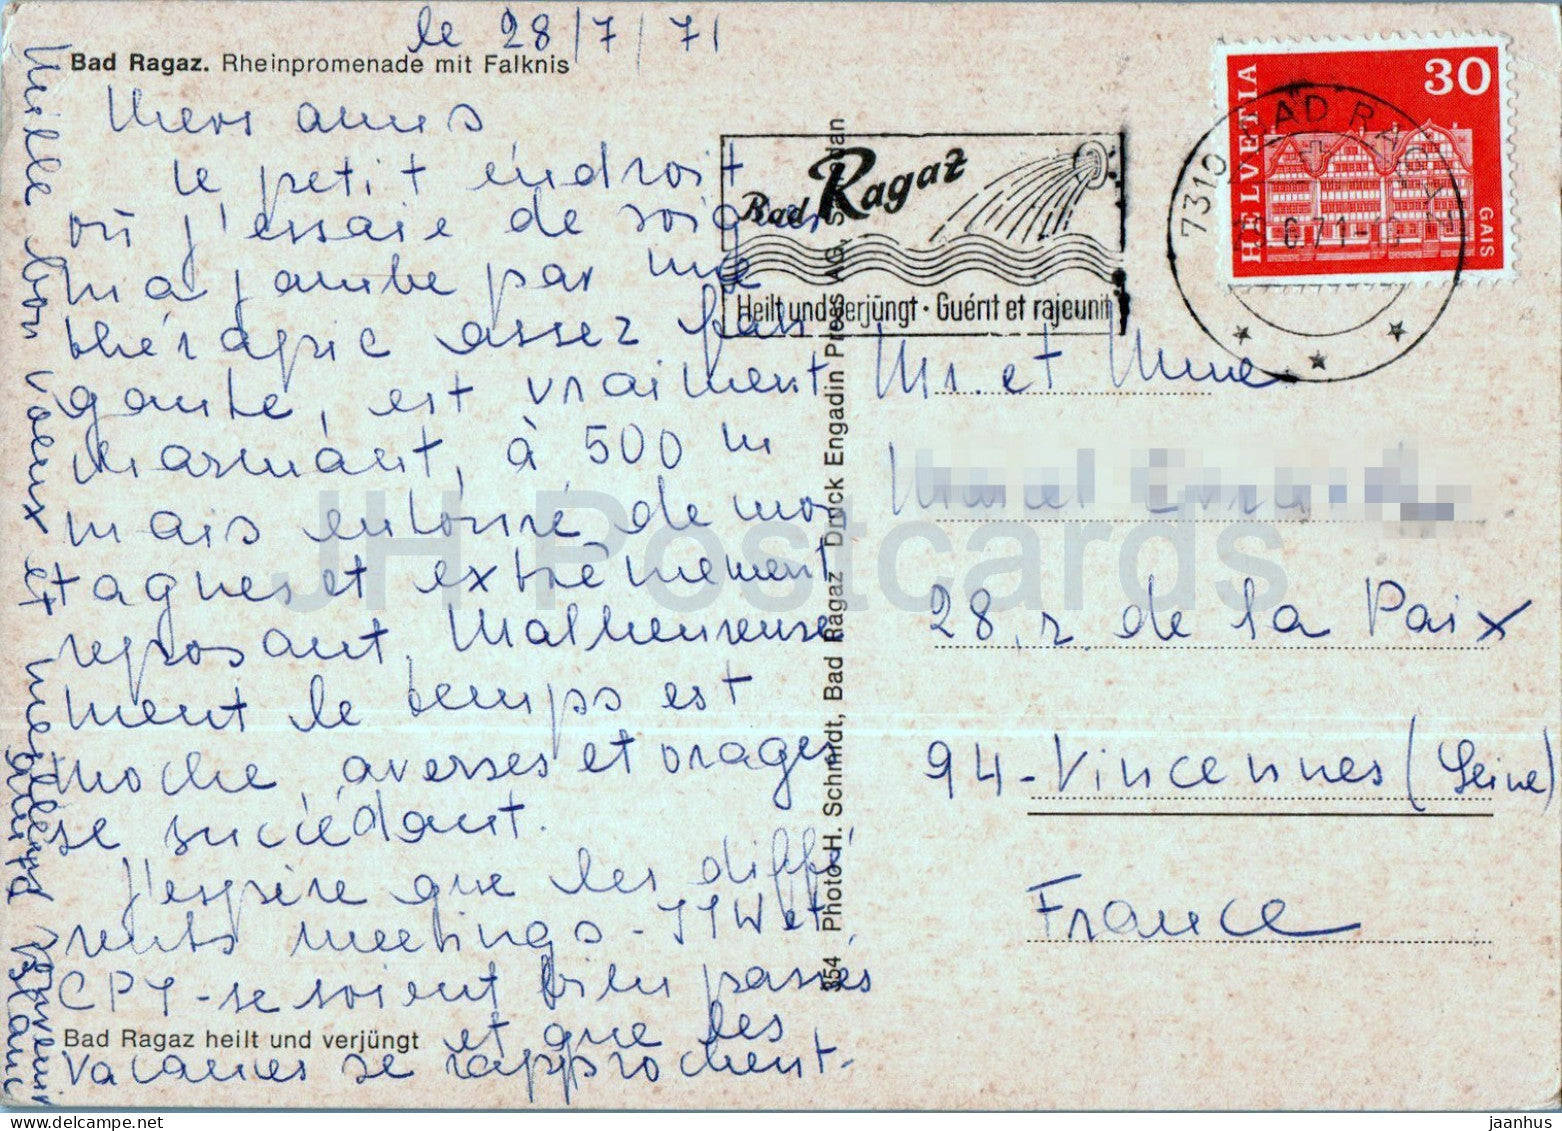 le 28/7/71
Bad Ragaz. Rheinpromenade mit Falknis
Chers amis
Le petit endroit
où j'essaie de soigner
ma jambe par une
thérapie assez fati
gante, est vraiment
charmant, à 500 m
mais entouré de mon
tagnes et extrêmement
reposant. Malheureuse
ment le temps est
moche, averses et orages
se succédant.
J'espère que les diffé
rents meetings - et
CPY - se soient bien passés
et que les
vacances se rapprochent.
Bad Ragaz heilt und verjüngt
Mille bons voeux et meilleurs souvenirs
Blanc
354 Photo H. Schmidt, Bad Ragaz Druck Engadin Press AG, Samedan
Bad Ragaz
Heilt und verjüngt · Guérit et rajeunit
7310 BAD RAGAZ
HELVETIA
30
GAIS
Mr. et Mme
28, r. de la Paix
94 - Vincennes (Seine)
France
JH Postcards
jaanhus